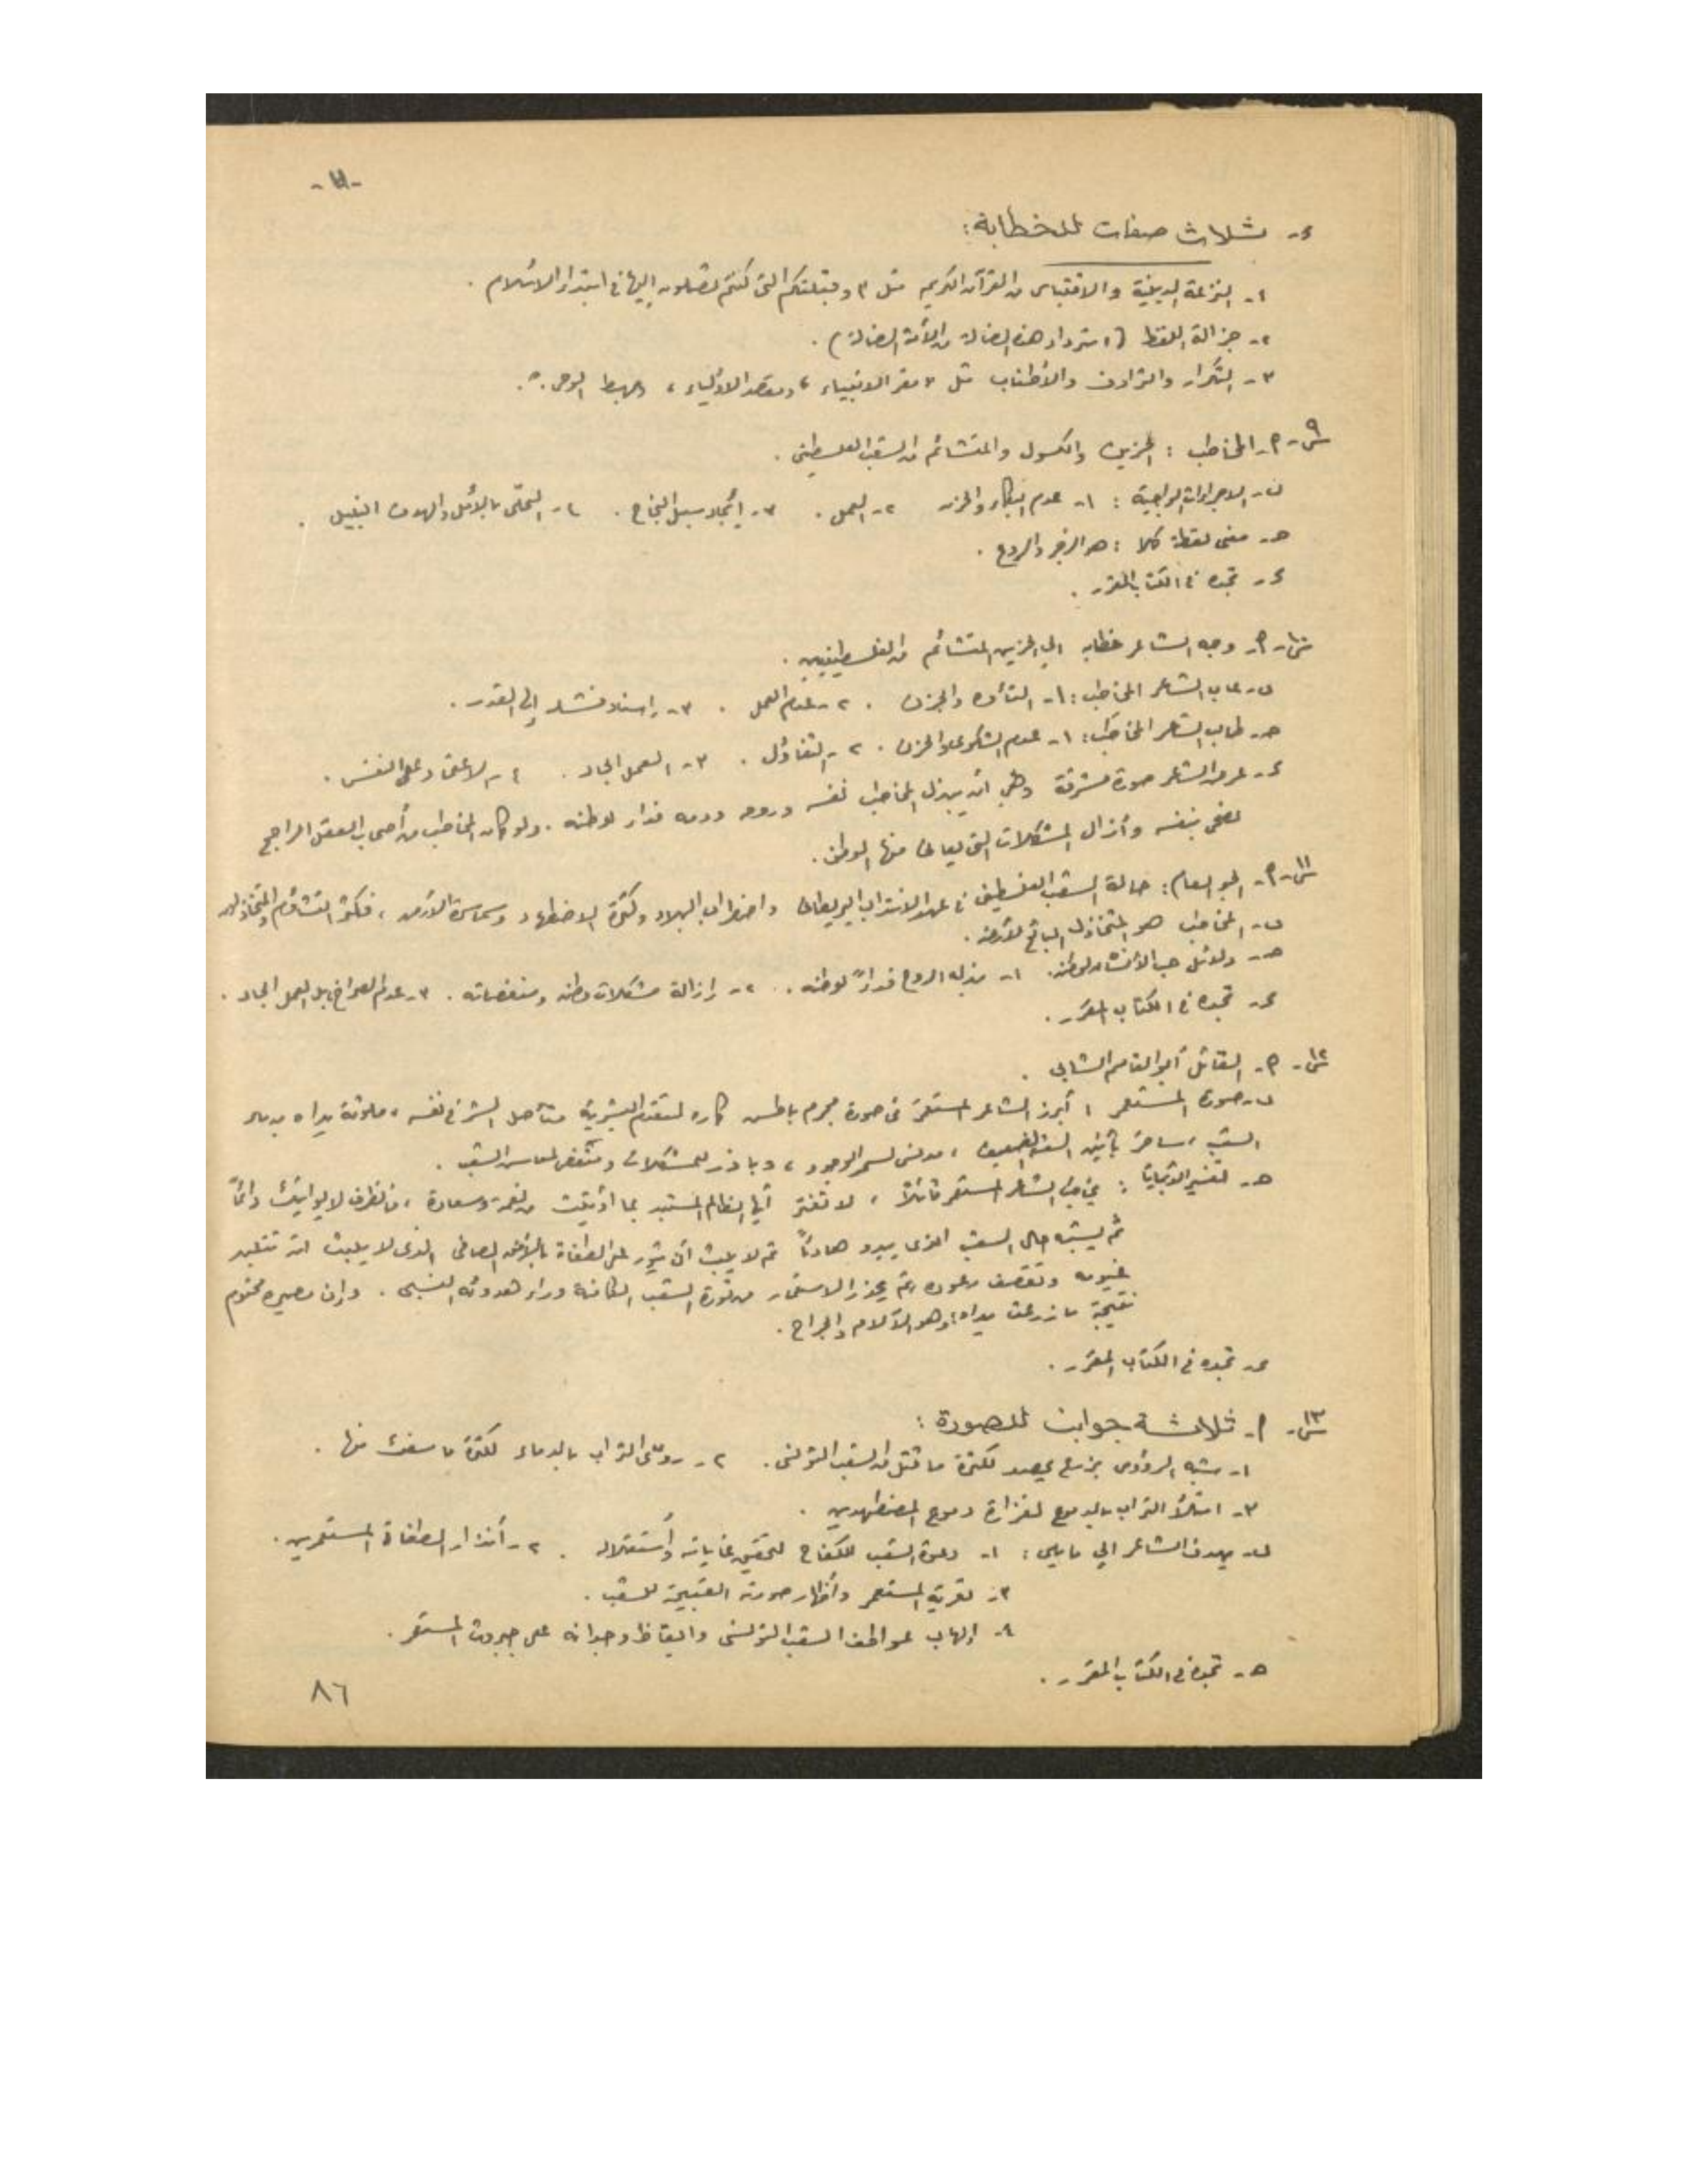 د- ثلاث صفات للخطابة:
١- النزعة الدينية والاقتباس من القرآن الكريم مثل " وقبلتكم التي كنتم تصلون إليها في ابتداء الاسلام .
٢- جزالة اللفظ ( استرداد هذه الضالة من الأمة الضالة ) .
٣- التكرار والترادف والأطناب مثل " مقر الانبياء ، ومقصد الاولياء ، ومهبط الوحي . " .
س٩- ٩- المخاطب : الحزين والكسول والمتشائم من الشعب الفلسطيني .
ب- الاجراءات الواجبة : ١- عدم البكاء والحزن ٢- العمل . ٣- إيجاد سبيل النجاح . ٤- التحلي بالأمل والهدف النبيل .
حـ- معنى لفظة كلا : هو الزجر والردع .
د- تجده في الكتاب المقرر .
س١٠- ٩- وجه الشاعر خطابه الي الحزين المتشائم من الفلسطينيين .
ب- عاب الشاعر المخاطب : ١- التأوه والحزن . ٢- عدم العمل . ٣- إسناد فشله إلى القدر .
حـ- طالب الشاعر المخاطب : ١- عدم الشكوى والحزن . ٢- التفاؤل . ٣- العمل الجاد . ٤- الاعتماد على النفس .
د- عرض الشاعر صورة مشرقة وهي أن يبذل المخاطب نفسه وروحه ودمه فداء لوطنه . ولو كان المخاطب من أصحاب العقل الراجح
لضحى بنفسه وأزال المشكلات التي يعاني منها الوطن .
س١١- ٩- الجو العام : حالة الشعب الفلسطيني في عهد الانتداب البريطاني واضطراب البلاد وكثرة الاضطهاد وسماسرة الأرض ، فكثر التشاؤم والتخاذل
ب- المخاطب هو المتخاذل البائع لأرضه .
حـ- دلائل حب الأنسان لوطنه . ١- بذله الروح فداءً لوطنه . ٢- إزالة مشكلات وطنه ومنغصاته . ٣- عدم الصراخ بل العمل الجاد .
د- تجده في الكتاب المقرر .
س١٢- ٩- القائل أبو القاسم الشابي .
ب- صورة المستعمر : أبرز الشاعر المستعمر في صورة مجرم باطش كاره لتقدم البشرية متأصل الشر في نفسه ، ملوثة يداه بدماء
الشعب ، ساخر بأنين الشعب الضعيف ، مدنس لسحر الوجود ، وباذر للمشكلات ومنغص لمعاش الشعب .
حـ- تفسير الأبيات : يخاطب الشاعر المستعمر قائلاً ، لا تغتر أيها الظالم المستبد بما أوتيت من نعمة وسعادة ، فالظرف لا يواتيك دائماً
ثم يشبه حال الشعب الذي يبدو هادئاً ثم لا يلبث أن يثور على الطغاة بالأفق الصافي الذي لا يلبث ان تتلبد
غيومه وتقصف رعوده ثم يحذر الاستعمار من ثورة الشعب الكامنة وراء هدوئه النسبي . وإن مصيره محتوم
نتيجة ما زرعت يداه وهو الآلام والجراح .
د- تجده في الكتاب المقرر .
س١٣- ٩- ثلاثة جوانب للصورة :
١- شبه الرؤوس بزرع يحصد لكثرة ما قتل من الشعب التونسي . ٢- روّى التراب بالدماء لكثرة ما سفك منها .
٣- امتلأ التراب بالدموع لغزارة دموع المضطهدين .
ب- يهدف الشاعر الي ما يلي : ١- دعوة الشعب للكفاح لتحقيق غاياته وأستقلاله . ٢- أنذار الطغاة المستعمرين .
٣- تعرية المستعمر وأظهار صورته القبيحة للشعب .
٤- إلهاب عواطف الشعب التونسي وايقاظ وجدانه على جبروت المستعمر .
حـ- تجده في الكتاب المقرر .
٨٦